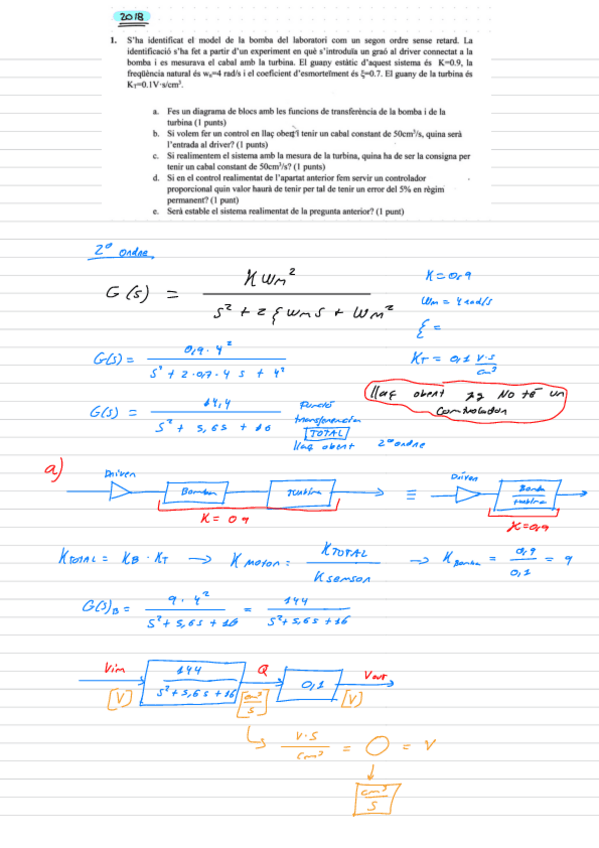 2018
1. S'ha identificat el model de la bomba del laboratori com un segon ordre sense retard. La
identificació s'ha fet a partir d'un experiment en què s'introduïa un graó al driver connectat a la
bomba i es mesurava el cabal amb la turbina. El guany estàtic d'aquest sistema és K=0.9, la
freqüència natural és wₙ=4 rad/s i el coeficient d'esmorteïment és ξ=0.7. El guany de la turbina és
K_T=0.1V·s/cm³.
a. Fes un diagrama de blocs amb les funcions de transferència de la bomba i de la
turbina (1 punts)
b. Si volem fer un control en llaç obert i tenir un cabal constant de 50cm³/s, quina serà
l'entrada al driver? (1 punts)
c. Si realimentem el sistema amb la mesura de la turbina, quina ha de ser la consigna per
tenir un cabal constant de 50cm³/s? (1 punts)
d. Si en el control realimentat de l'apartat anterior fem servir un controlador
proporcional quin valor haurà de tenir per tal de tenir un error del 5% en règim
permanent? (1 punt)
e. Serà estable el sistema realimentat de la pregunta anterior? (1 punt)
2º ordre
G(s) = K Wm² / s² + 2 ξ Wm s + Wm²
K = 0,9
Wm = 4 rad/s
ξ =
K_T = 0,1 V·s / cm³
G(s) = 0,9 · 4² / s² + 2 · 0,7 · 4 s + 4²
llaç obert => No té un
controlador
G(s) = 14,4 / s² + 5,6s + 16
Funció
transferencia
TOTAL
llaç obert 2º ordre
a)
Driver Bomba turbina ≡ Driver Bomba / turbina
K = 0,9 K=0,9
K TOTAL = K_B · K_T → K motor = K TOTAL / K sensor → K Bomba = 0,9 / 0,1 = 9
G(s)_B = 9 · 4² / s² + 5,6s + 16 = 144 / s² + 5,6s + 16
Vin [V] 144 / s² + 5,6s + 16 Q [cm³/s] 0,1 Vout [V]
V·s / cm³ = O = V
cm³ / s